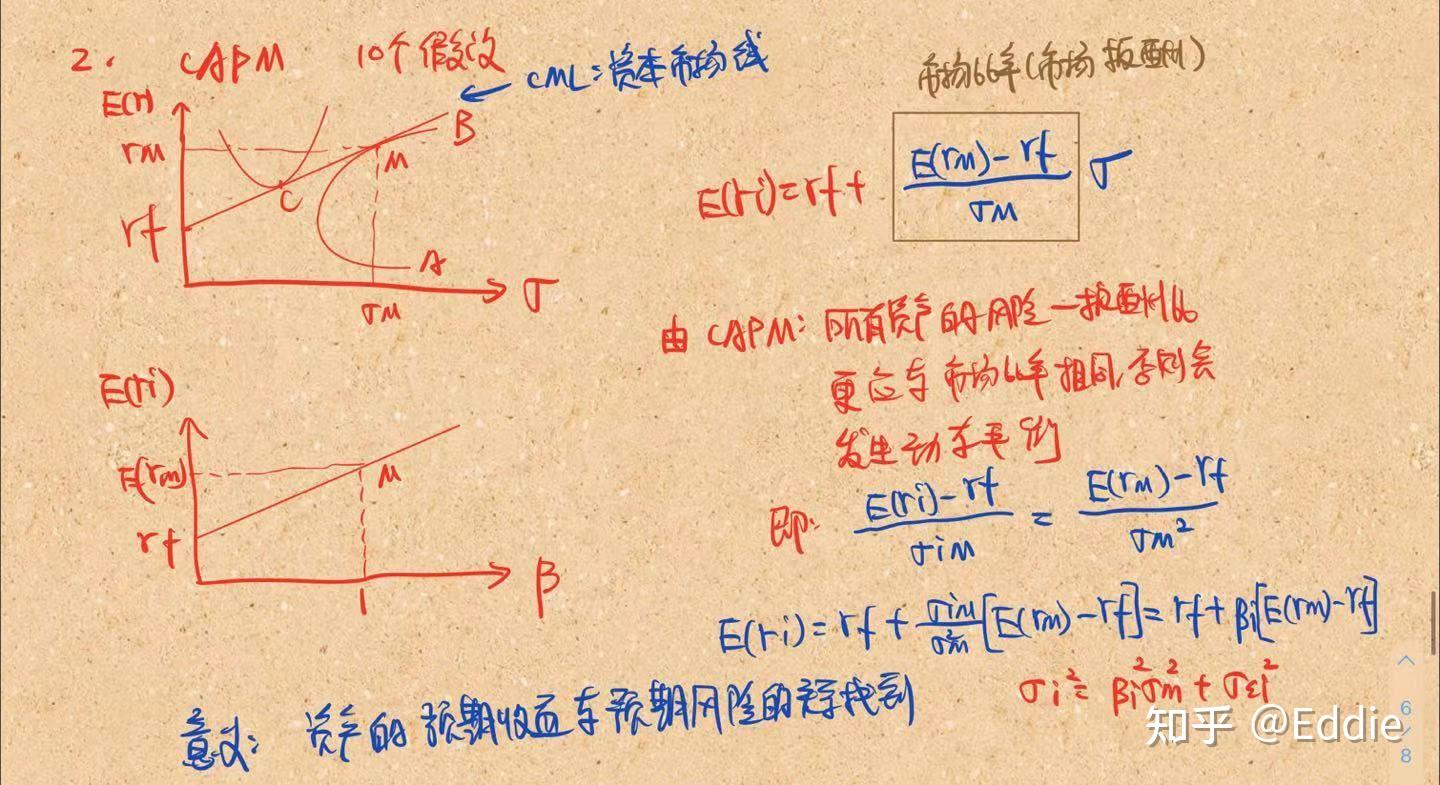 2. CAPM 10个假设
CML:资本市场线
E(r)
rM
rf
B
M
C
A
σM
σ
市场斜率(市场报酬率)
E(ri)=rf+ (E(rM)-rf)/σM σ
由CAPM:所有资产的风险一报酬斜率
更应与市场斜率相同,否则会
发生动态平衡
即: (E(ri)-rf)/σiM = (E(rM)-rf)/σM²
E(ri)
E(rM)
rf
M
1
β
E(ri)=rf+ σiM/σ²M [E(rM)-rf]=rf+βi[E(rM)-rf]
σi²=βi²σM²+σεi²
意义:资产的预期收益与预期风险的关系找到
知乎 @Eddie
6/8